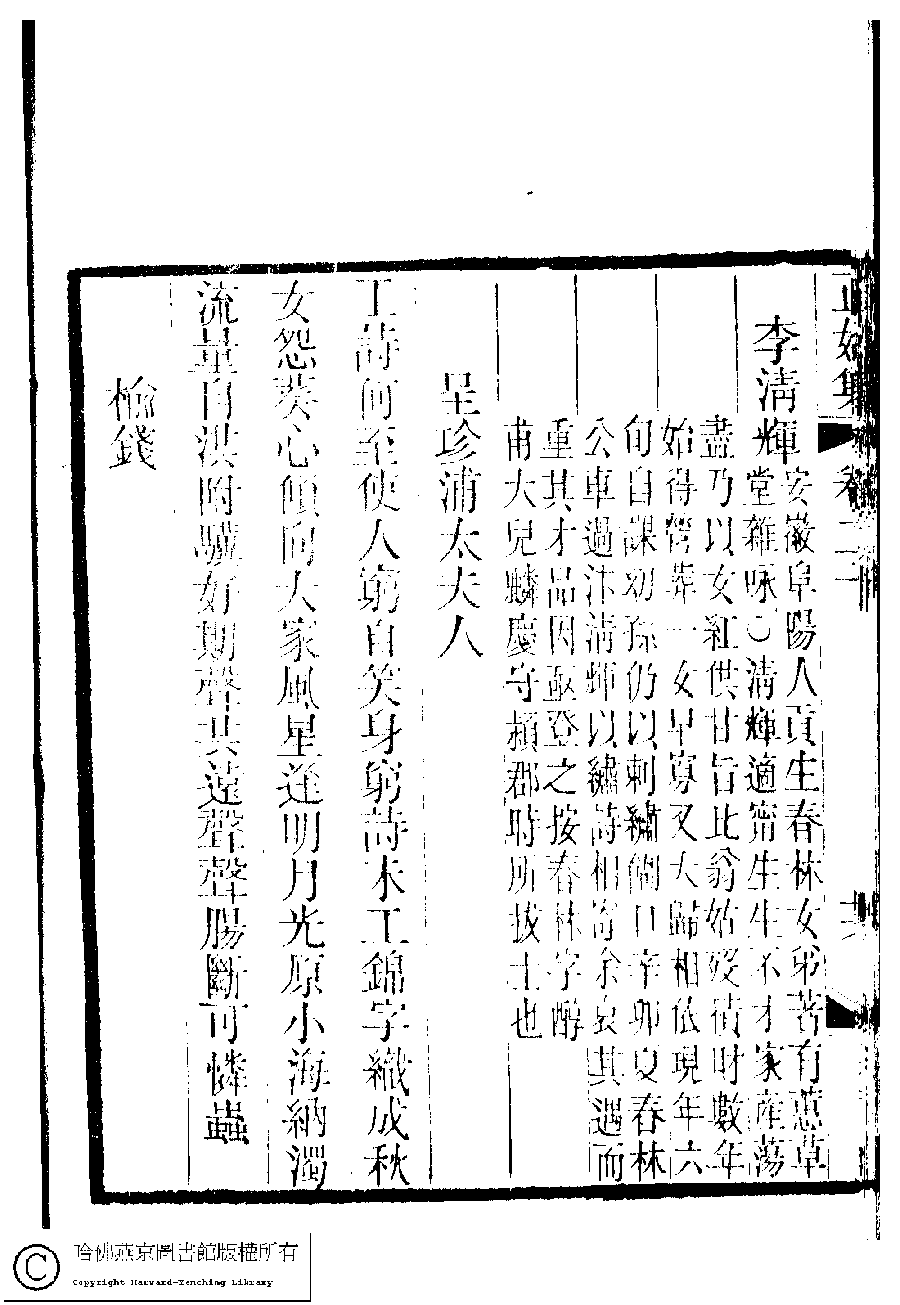 正始集 卷二 廿六
李清輝 安徽阜陽人貢生春林女弟著有蕙草
堂雜咏○清輝適甯生生不才家產蕩
盡乃以女紅供甘旨比翁姑歿積財數年
始得營葬一女早寡又大歸相依現年六
旬自課幼孫仍以刺繡餬口辛卯夏春林
公車過汴清輝以繡詩相寄余哀其遇而
重其才品因亟登之按春林字醇
甫大兒麟慶守潁郡時所拔士也
呈珍浦太夫人
工詩何至使人窮自笑身窮詩未工錦字織成秋
女怨葵心傾向大家風星逢明月光原小海納濁
流量自洪附驥好期聲共遠聲聲腸斷可憐蟲
榆錢
哈佛燕京圖書館版權所有
Copyright Harvard-Yenching Library